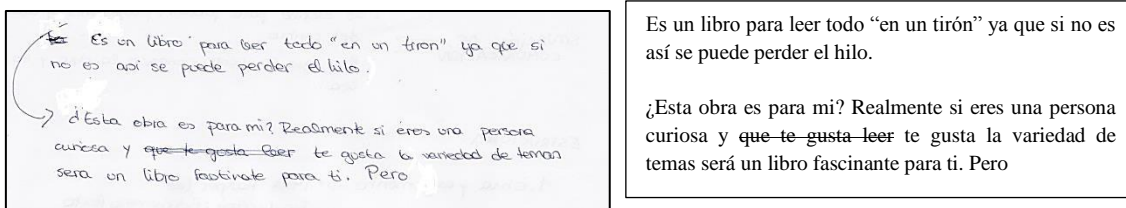 Es un libro para leer todo "en un tiron" ya que si
no es asi se puede perder el hilo.
¿Esta obra es para mi? Realmente si eres una persona
curiosa y que te gusta leer te gusta la variedad de temas
sera un libro fastinate para ti. Pero
Es un libro para leer todo “en un tirón” ya que si no es
así se puede perder el hilo.
¿Esta obra es para mi? Realmente si eres una persona
curiosa y que te gusta leer te gusta la variedad de
temas será un libro fascinante para ti. Pero